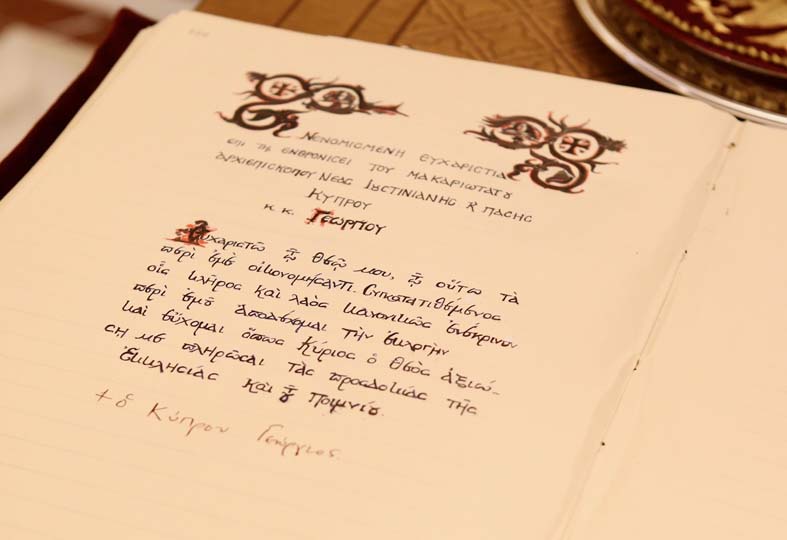 ΝΕΝΟΜΙΣΜΕΝΗ ΕΥΧΑΡΙΣΤΙΑ
ΕΠΙ ΤΗ ΕΝΘΡΟΝΙΣΕΙ ΤΟΥ ΜΑΚΑΡΙΩΤΑΤΟΥ
ΑΡΧΙΕΠΙΣΚΟΠΟΥ ΝΕΑΣ ΙΟΥΣΤΙΝΙΑΝΗΣ Κ ΠΑΣΗΣ
ΚΥΠΡΟΥ
Κ. Κ. ΓΕΩΡΓΙΟΥ
Εὐχαριστῶ τῷ Θεῷ μου, τῷ οὕτω τὰ
περὶ ἐμὲ οἰκονομήσαντι. Συγκατατιθέμενος
οἷς κλῆρος καὶ λαὸς κανονικῶς ἐνέκρινον
περὶ ἐμοῦ ἀποδέχομαι τὴν ἐκλογὴν
καὶ εὔχομαι ὅπως Κύριος ὁ Θεὸς ἀξιώ-
σῃ με πληρῶσαι τὰς προσδοκίας τῆς
Ἐκκλησίας καὶ τοῦ Ποιμνίου.
+ ὁ Κύπρου Γεώργιος.